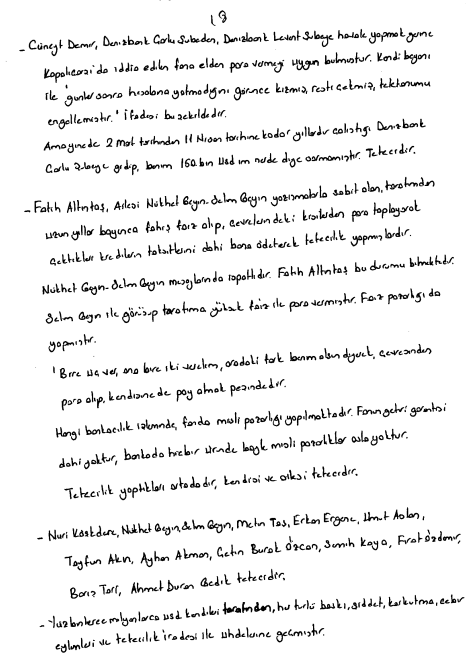 18
- Cüneyt Demir, Denizbank Çorlu Şubeden, Denizbank Levent Şubeye havale yapmak yerine
Kapalıçarşı'da iddia edilen fona elden para vermeyi uygun bulmuştur. Kendi beyanı
ile "günler sonra hesabına yatmadığını görünce kızmış, resti çekmiş, telefonumu
engellemiştir." İfadesi bu şekildedir.
Ama yine de 2 Mart tarihinden 11 Nisan tarihine kadar yıllardır çalıştığı Denizbank
Çorlu Şubeye gidip, benim 150 bin usd im nerde diye sormamıştır. Tefecidir.
- Fatih Altıntaş, Ailesi Nükhet Geyin-Selim Geyin yazışmalarla sabit olan, tarafımdan
uzun yıllar boyunca fahiş faiz alıp, çevrelerindeki kişilerden para toplayarak
çektikleri kredilerin taksitlerini dahi bana ödeterek tefecilik yapmışlardır.
Nükhet Geyin-Selim Geyin mesajlarında ispatlıdır. Fatih Altıntaş bu durumu bilmektedir.
Selim Geyin ile görüşüp tarafıma yüksek faiz ile para vermiştir. Faiz pazarlığı da
yapmıştır.
"Bire üç ver, ona bire iki verelim, aradaki fark benim olsun diyerek, çevresinden
para alıp, kendisine de pay almak peşindedir.
Hangi bankacılık işleminde, fonda misli pazarlığı yapılmaktadır. Fonun getiri garantisi
dahi yoktur, bankada hiçbir üründe böyle misli pazarlıklar asla yoktur.
Tefecilik yaptıkları ortadadır, kendisi ve ailesi tefecidir.
- Nuri Kaskdere, Nükhet Geyin, Selim Geyin, Metin Taş, Erkan Ergene, Umut Aslan,
Tayfun Akın, Ayhan Akman, Çetin Burak Özcan, Semih Kaya, Fırat Özdemir,
Barış Tarı, Ahmet Duran Gedik tefecidir.
- Yüzbinlerce milyonlarca usd kendileri tarafından, her türlü baskı, şiddet, korkutma, cebir
eylemleri ve tefecilik iradesi ile uhdelerine geçmiştir.